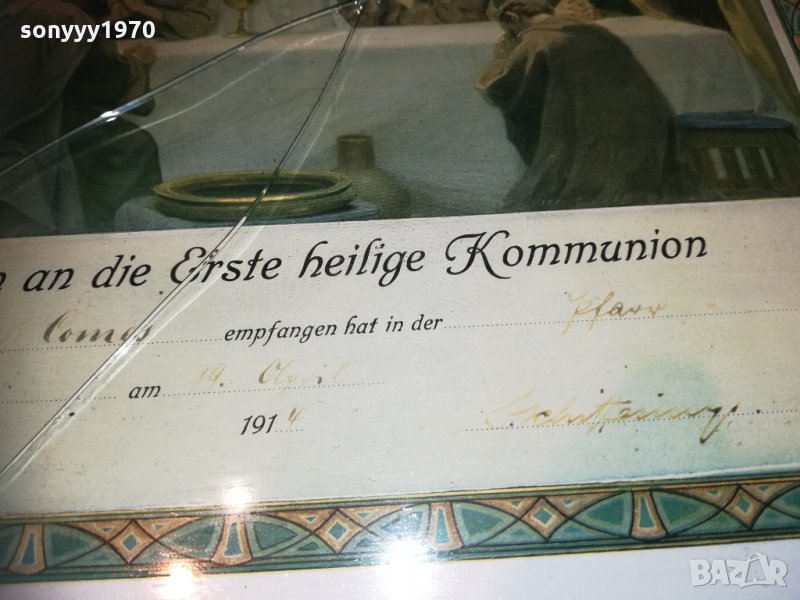 sonyyy1970
an die Erste heilige Kommunion
Comes empfangen hat in der Pfarr =
am 19. April
1914
BAZAR